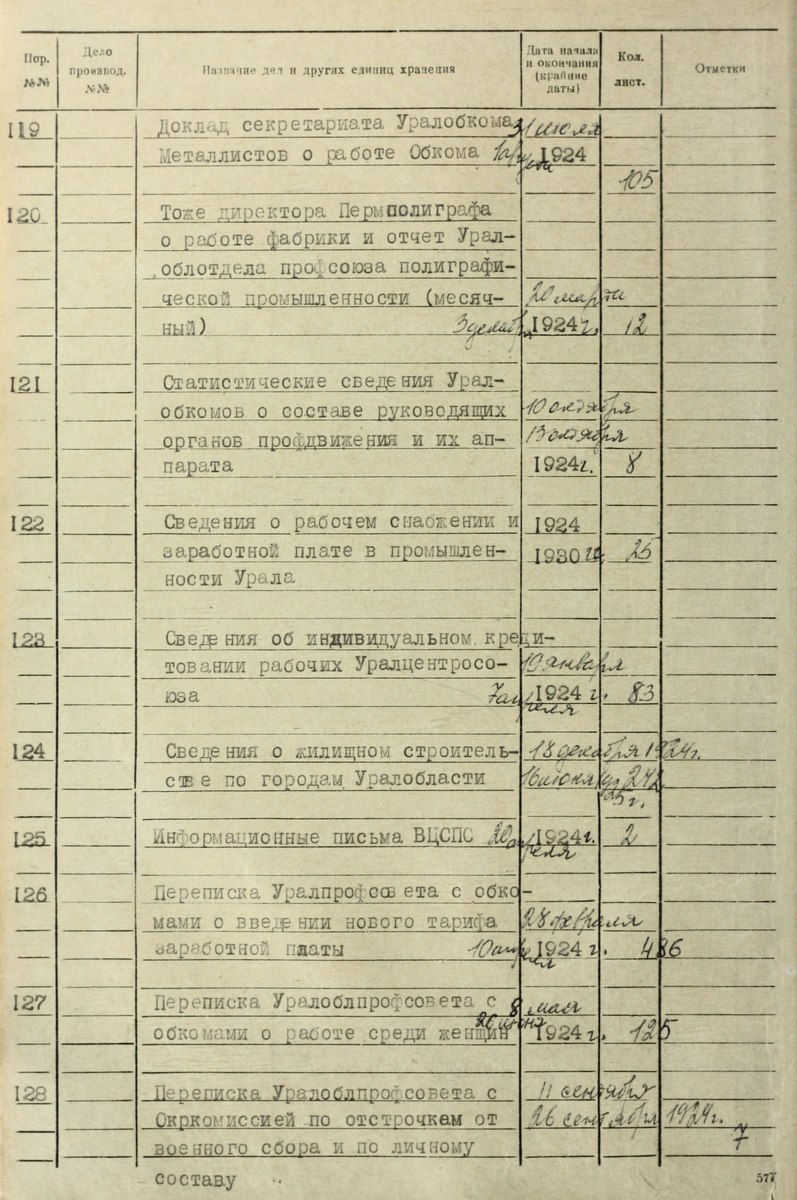 Пор. №№ Дело производ. №№ Название дел и других единиц хранения Дата начала и окончания (крайние даты) Кол. лист. Отметки
119 Доклад секретариата Уралобкома 31 июля
Металлистов о работе Обкома 1924
105
120 Тоже директора Пермполиграфа
о работе фабрики и отчет Урал-
облотдела профсоюза полиграфи-
ческой промышленности (месяч- 20 марта
ный) 3 декабря 1924 г. 12
121 Статистические сведения Урал-
обкомов о составе руководящих 10 октября
органов профдвижения и их ап- 13 октября
парата 1924 г. 8
122 Сведения о рабочем снабжении и 1924
заработной плате в промышлен- 1930 гг. 25
ности Урала
123 Сведения об индивидуальном креди-
товании рабочих Уралцентросо- 19 января
юза 7 апреля 1924 г. 83
124 Сведения о жилищном строитель- 18 декабря 1924 г.
стве по городам Уралобласти 16 июня 242
25 г.
125 Информационные письма ВЦСПС 20 апреля 1924 г. 2
126 Переписка Уралпрофсовета с обко-
мами о введении нового тарифа 28 февраля
заработной платы 10 апреля 1924 г. 486
127 Переписка Уралоблпрофсовета с 8 мая
обкомами о работе среди женщин 26 июня 1924 г. 125
128 Переписка Уралоблпрофсовета с 11 сентября
Окркомиссией по отстрочкам от 26 сентября 1924 г.
военного сбора и по личному 7
составу
577